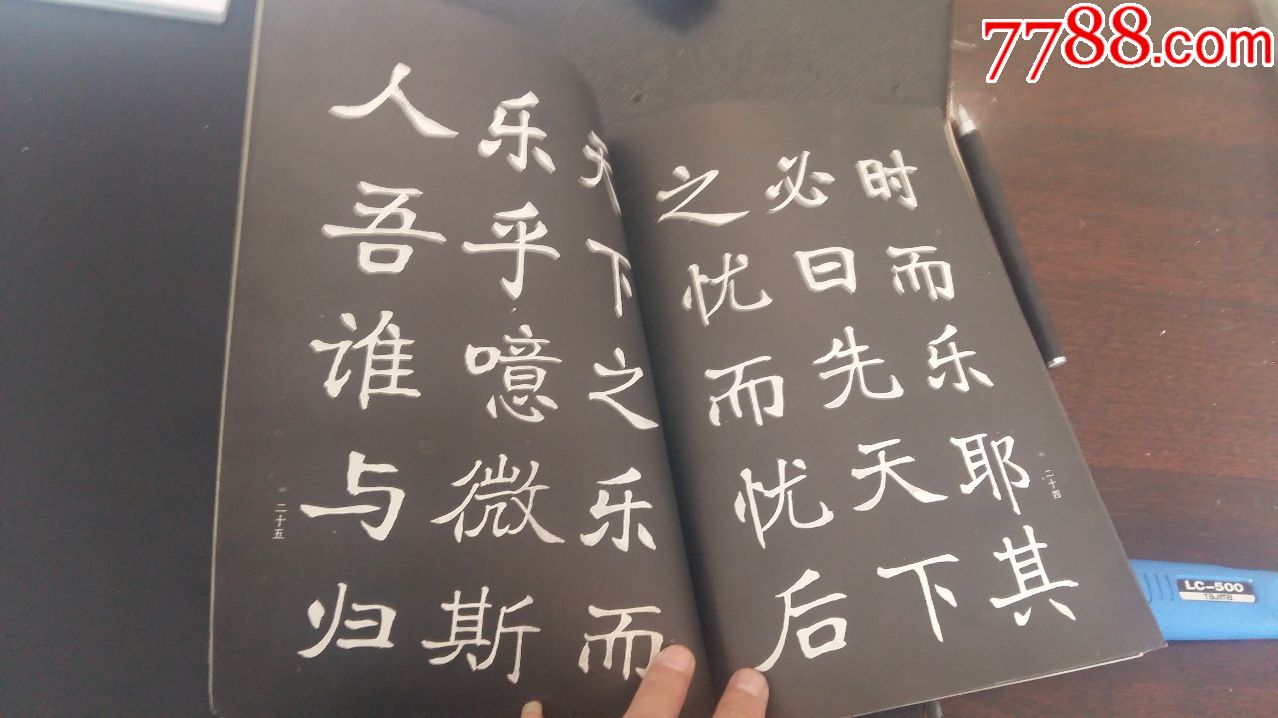 7788.com
时而乐耶其
必曰先天下
之忧而忧后
二十四
天下之乐而
乐乎噫微斯
人吾谁与归
二十五
LC-500
TAJIMA